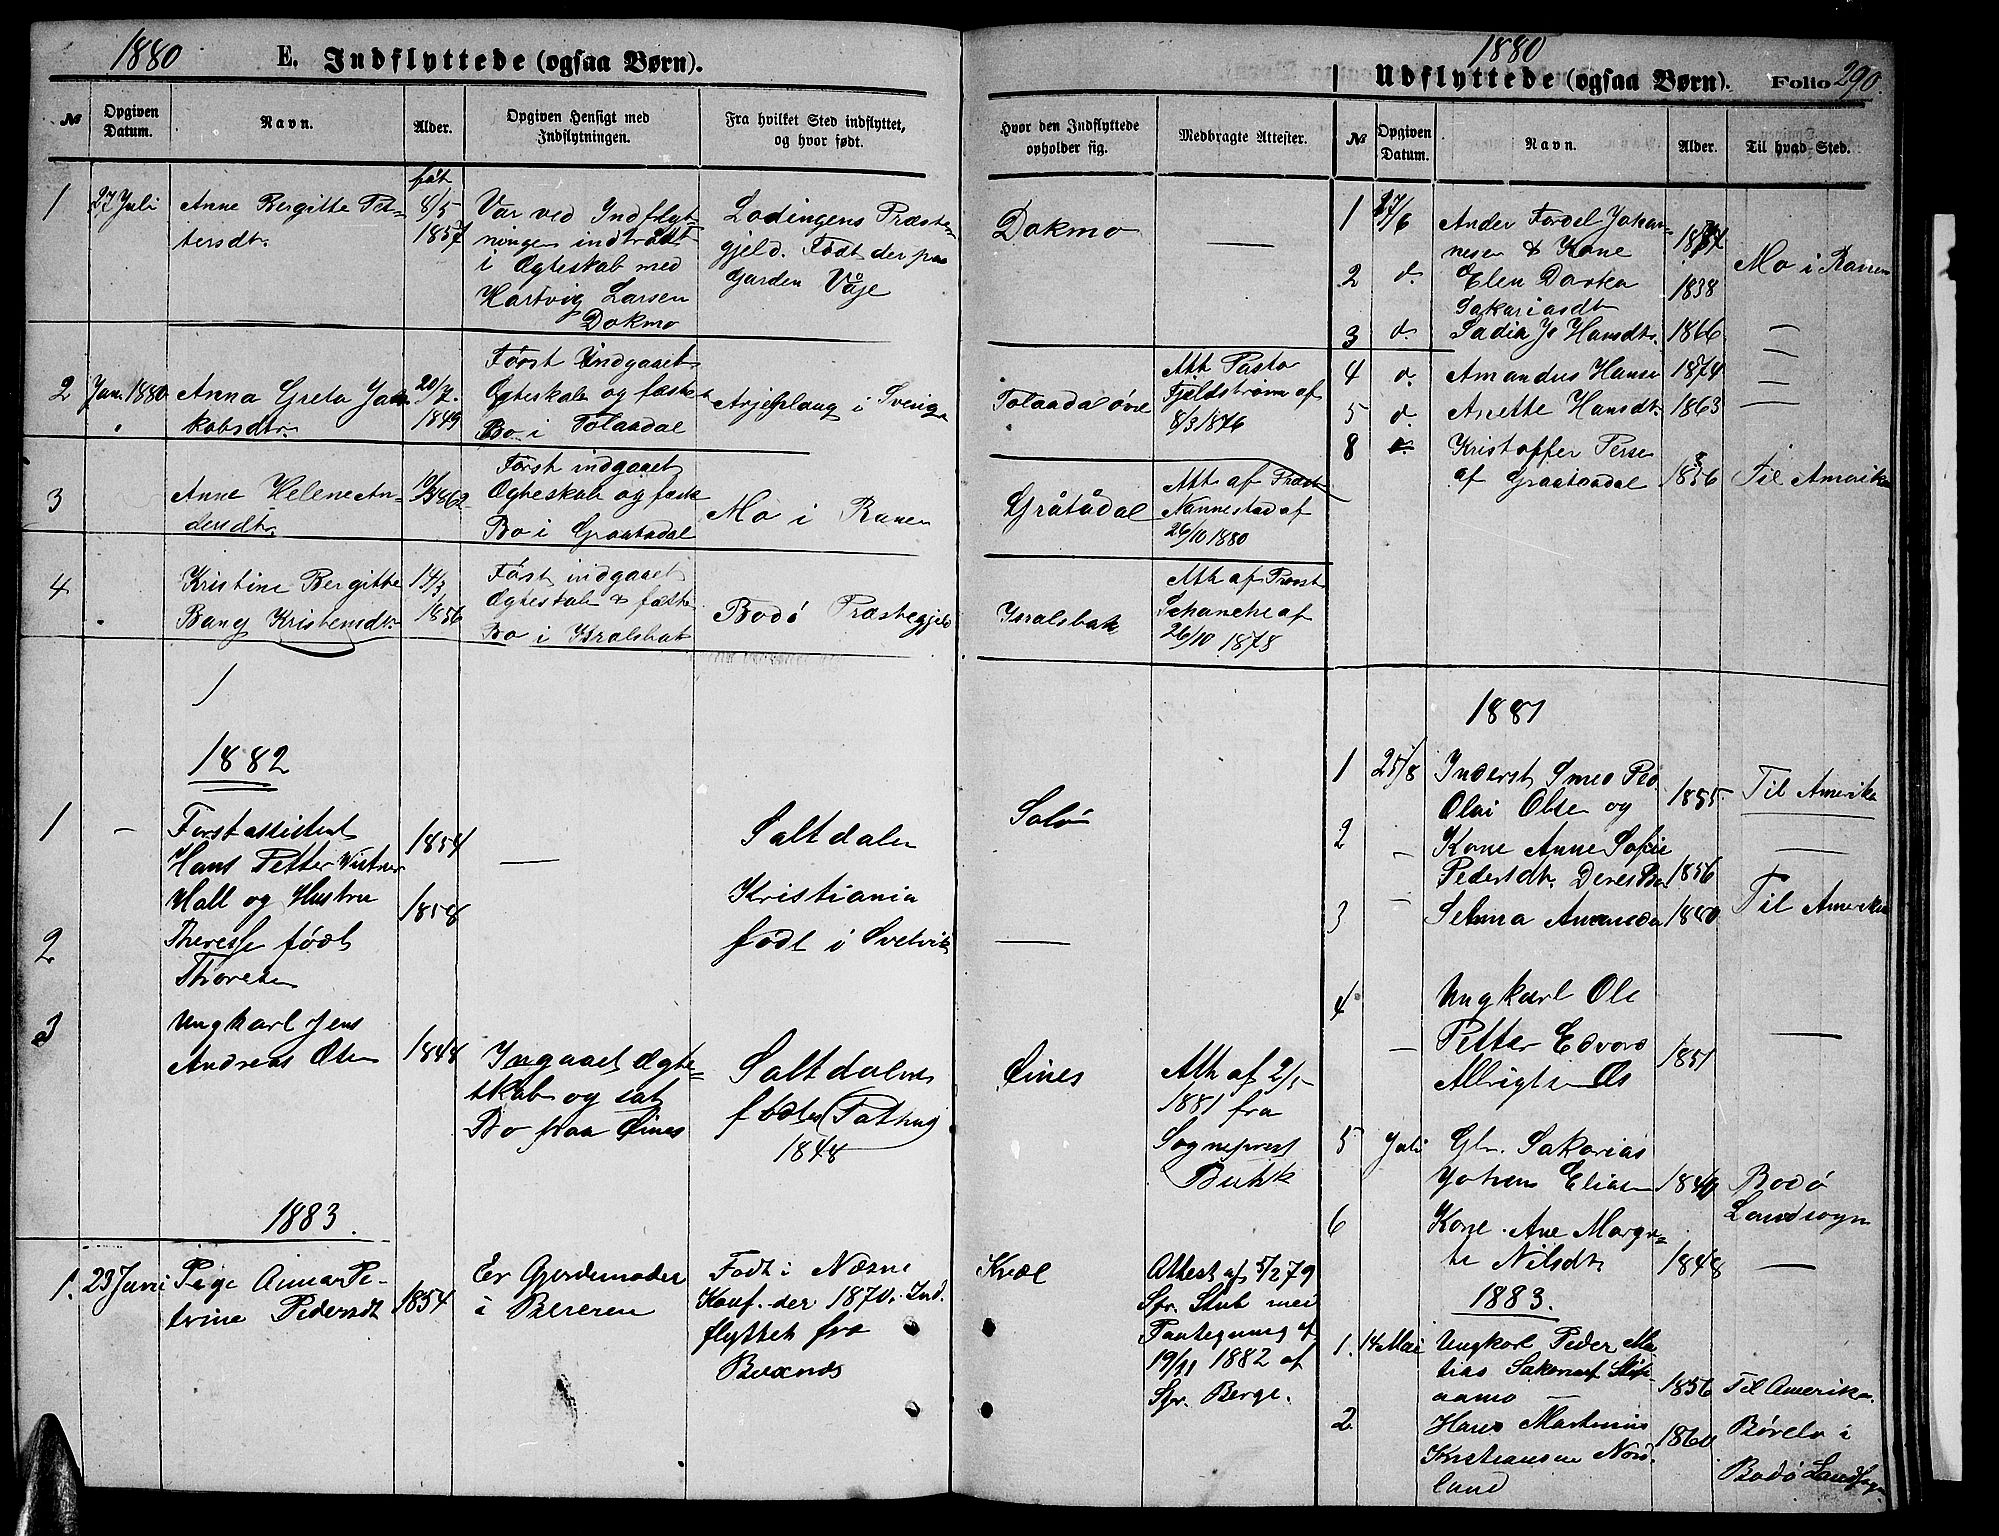 1880
E. Indflyttede (ogsaa Børn).
№
Opgiven Datum.
Navn.
Alder.
Opgiven Hensigt med Indflytningen.
Fra hvilket Sted indflyttet, og hvor født.
1
27 Juli
Anne Bergitte Pet-
tersdt.
føt
8/5
1857
Var ved Indflyt-
ningen indtrådt
i Ægteskab med
Hartvig Larsen
Dokmo
Lodingens Præste-
gjeld. Født der paa
Garden Våje
2
Jan. 1880
Anna Greta Ja-
kobsdtr.
20/7.
1849
Først Indgaaet
Ægteskab og fæstet
Bo i Tolaadal
Arjeplaug i Sverige
3
Anne Helene An-
dersdtr.
1862
Først indgaaet
Ægteskab og fæstet
Bo i Graatadal
Mo i Ranen
4
Kristine Bergitte
Bang Kristensdtr.
14/3
1856
Først indgaaet
Ægteskab & fæstet
Bo i Israelsbak
Bodø Præstegjeld
1882
1
–
Forstassistent
Hans Petter
Hall og Hustru
2
Therese født
Thoresen
1854
1858
Saltdalen
Kristiania
født i Svelvik
3
Ungkarl Jens
Andreas Olsen
1848
Ingaaet Ægte-
skab og sat
Bo paa Øines
Saltdalens
født
1848
1883
1.
23 Juni
Pige Anna Pe-
trine Pedersdt
1854
Er Gjordemoder
i Beieren
Født i Næsne
Konf. der 1870. Ind-
flyttet fra
Boxnæs
Hvor den Indflyttede opholder sig.
Medbragte Attester.
Dokmo
Tolaadal øvre
Att. Pastor
Fjeldstrøm af
8/3 1876
Gråtådal
Att. af Præst
Nannestad af
26/10 1880
Isralsbak
Att. af Provst
Schanche af
26/10 1878
Solø
Øines
Att. af 2/5
1881 fra
Sogneprest
Kvæl
Attest af 5/2 79
Spr. Stub med
Paategning af
19/11 1882 af
Spr. Berge.
1880
Udflyttede (ogsaa Børn).
Folio 290.
№
Opgiven Datum.
Navn.
Alder.
Til hvad Sted.
1
27/6
Anders Fordel Johan-
nesen & Kone
Mo i Ranen
2
d.
Elen Dortea
Sakariasdt
1838
3
d.
Hansdt.
1866
–
4
d.
Amandus Hansen
1874
–
5
d.
Anette Hansdt.
1863
–
8
Kristoffer Persen
af Graataadal
1856
Til Amerika
1881
1
25/8
Inderst Smed Ped.
Olai Olsen og
1855.
Til Amerika
2
–
Kone Anne Sofie
Pedersdt.
1856
–
3
–
Selma Amanda
1880
Til Amerika
4
–
Ungkarl Ole
Petter Edvard
Albrigtsen Os
1851
–
5
Juli
Gbr. Sakarias
Johan Eliasen
1840
Bodø
Landsogn
6
Kone Ane Margre-
te Nilsdt.
1848
–
1883.
1.
14 Mai
Ungkarl Peder Ma-
tias
aamo
1856
Til Amerika.
2
Hans Martinus
Kristiansen Nord-
land
1860.
Børela i
Bodø Landsogn